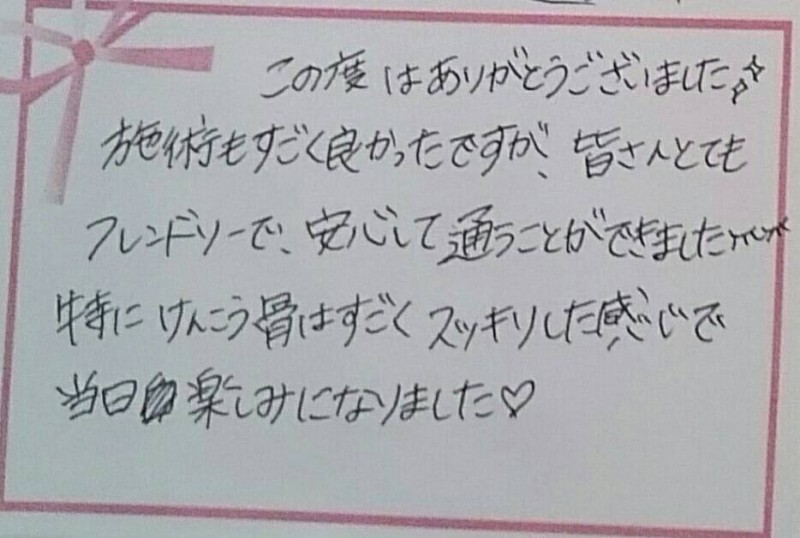 この度はありがとうございました
施術もすごく良かったですが、皆さんとても
フレンドリーで、安心して通うことができました
特にけんこう骨はすごくスッキリした感じで
当日楽しみになりました♡